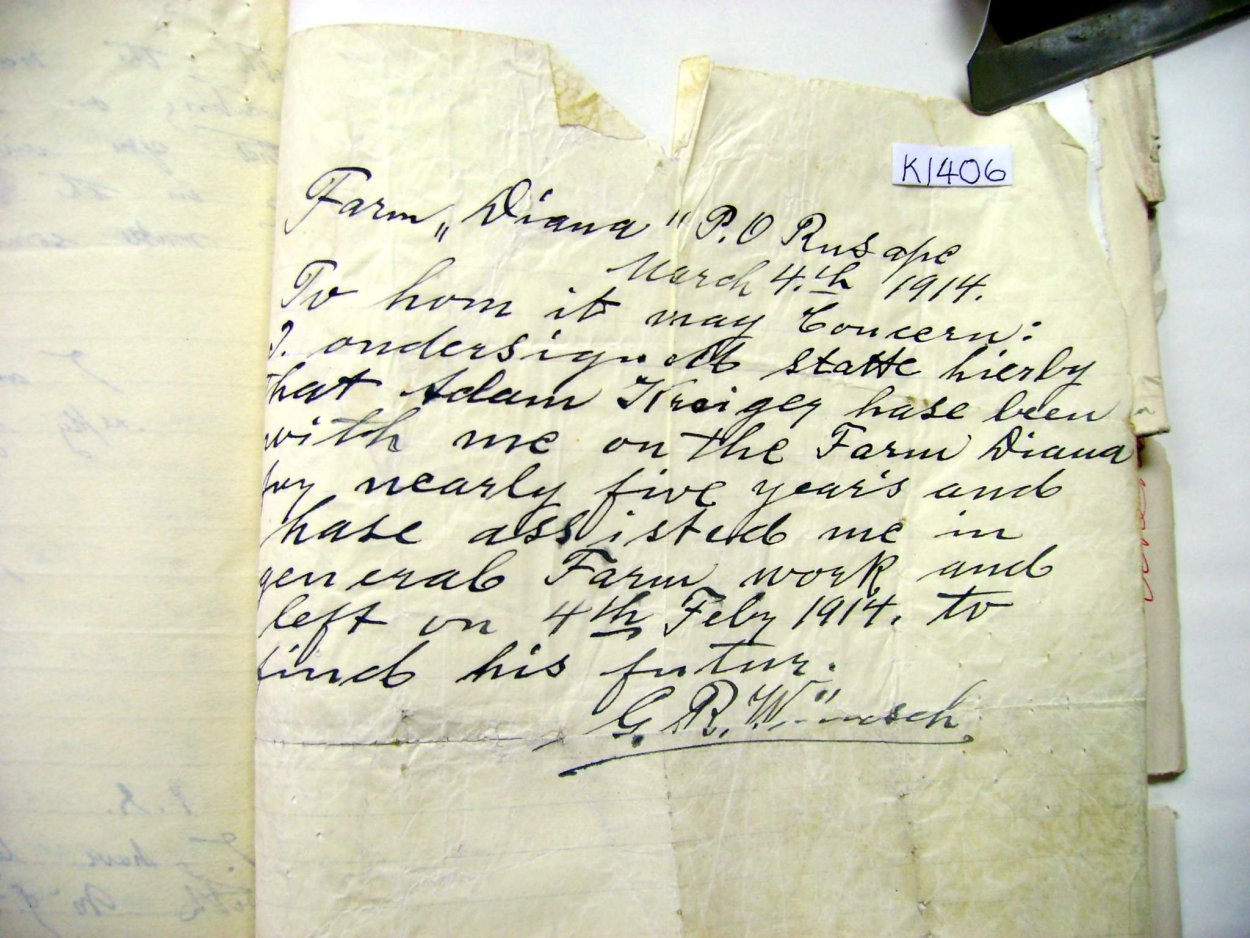 K1406
Farm „Diana" P.O Rusape
March 4.th 1914.
To hom it may Concern:
I. ondersigned statte hierby
that Adam Kreiger hase been
with me on the Farm Diana
for nearly five years and
hase assisted me in
general Farm work and
left on 4th Feby 1914. to
find his futur.
G. R. Wünsch
P.S.
I have